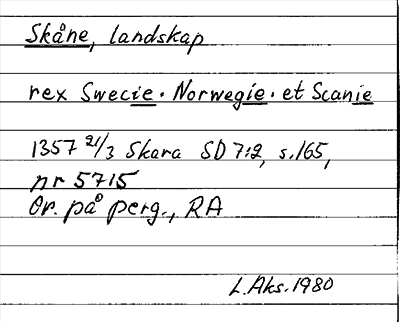 Skåne, landskap
rex Swecie · Norwegie · et Scanie
1357 21/3 Skara SD 7:2, s.165,
nr 5715
Or. på perg., RA
L.Aks. 1980